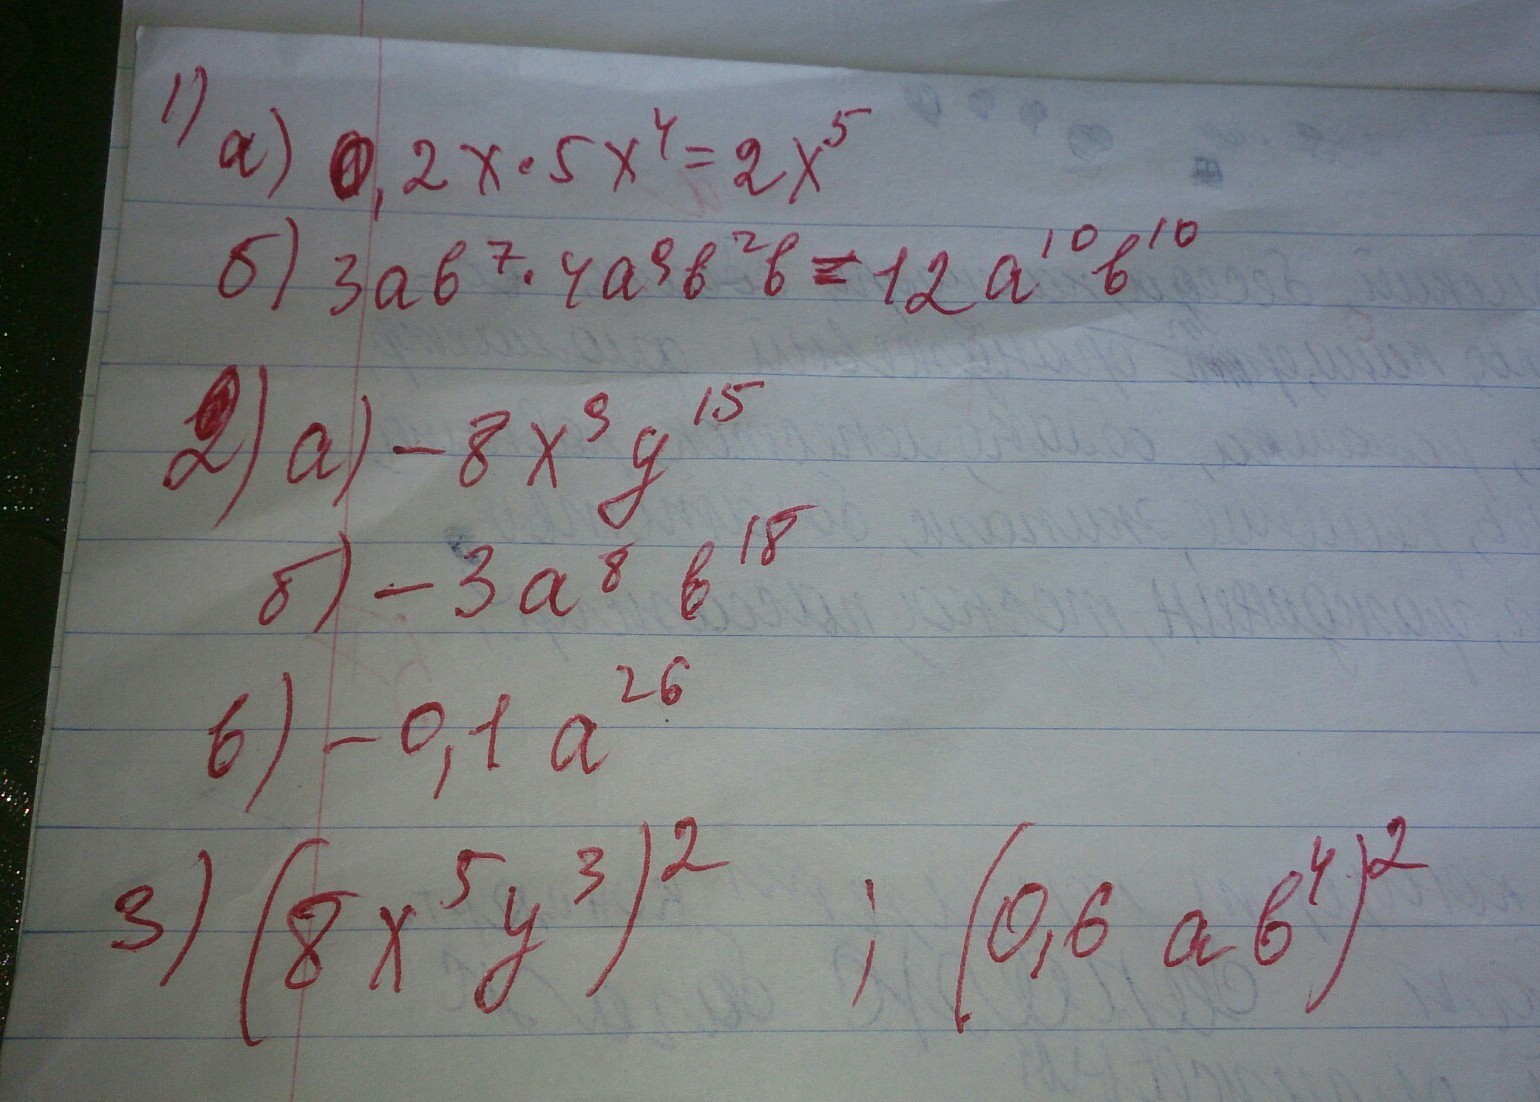 1)
а) 0,2x·5x⁴=2x⁵
б) 3ab⁷·4a⁹b²b=12a¹⁰b¹⁰
2) а) -8x⁹y¹⁵
б) -3a⁸b¹⁸
в) -0,1a²⁶
3) (8x⁵y³)² ; (0,6ab⁴)²